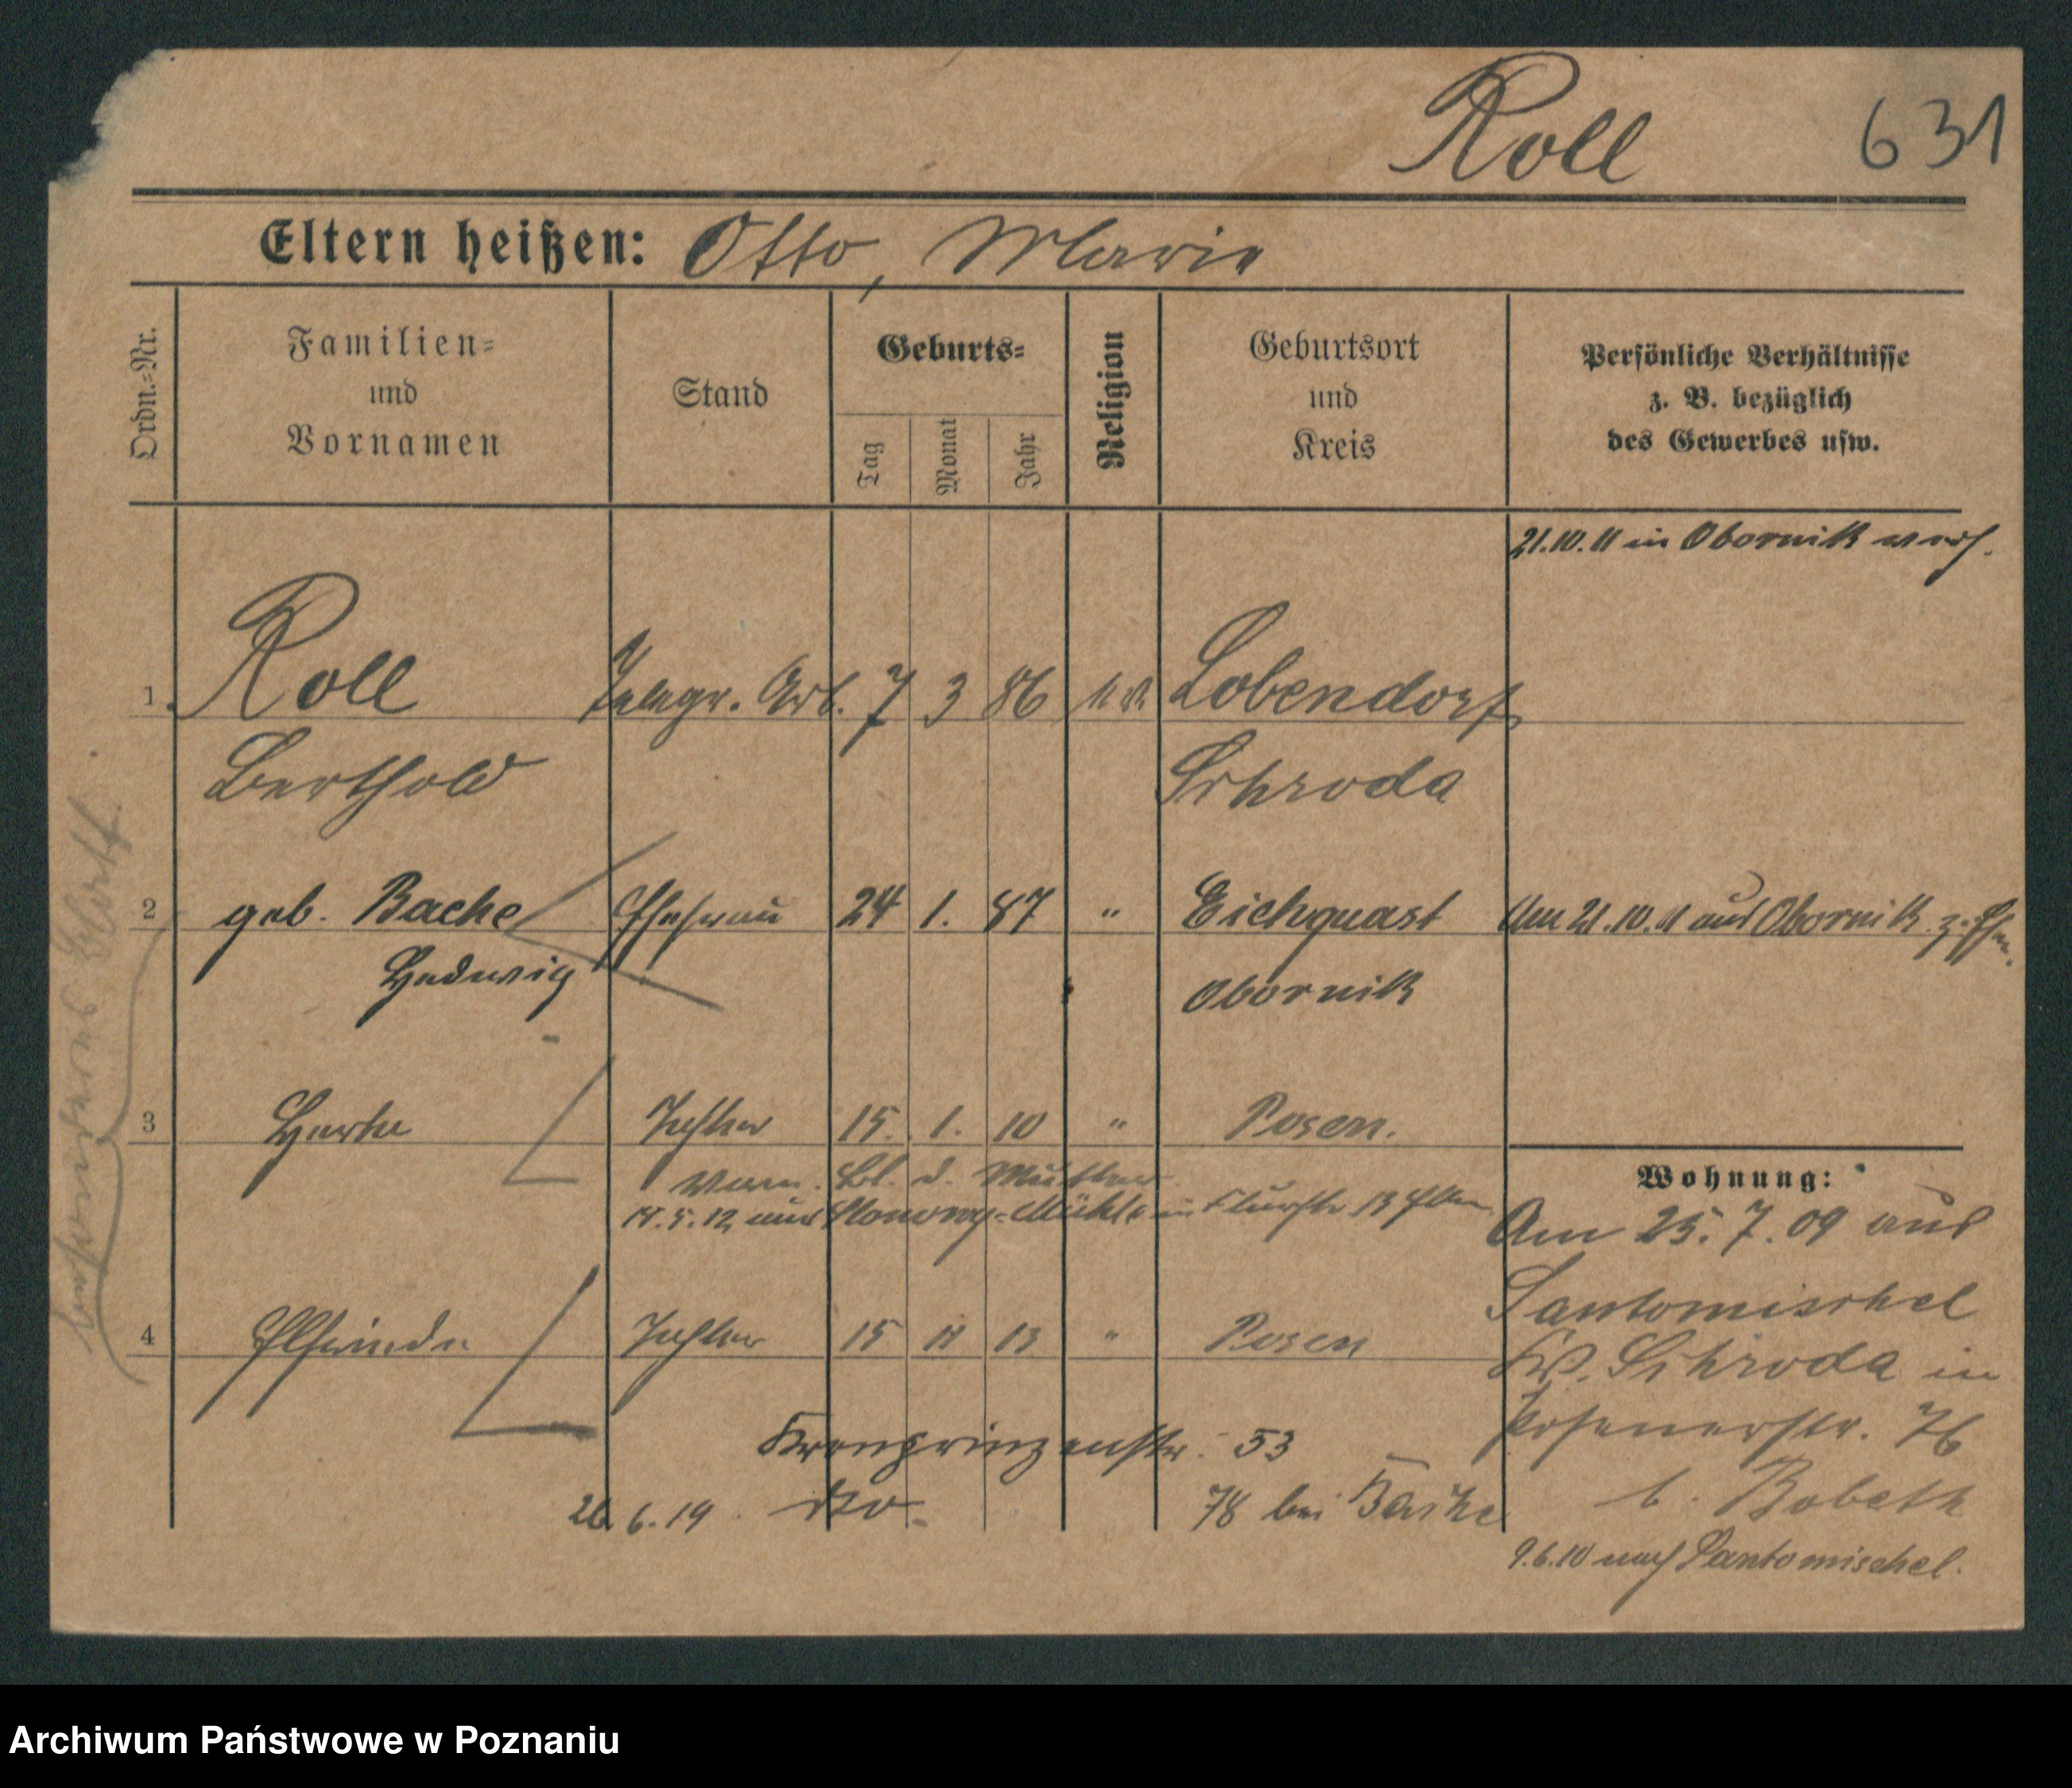 Roll 631
Eltern heißen: Otto, Marie
Ordn.-Nr.
Familien- und Vornamen
Stand
Geburts-
Tag Monat Jahr
Religion
Geburtsort und Kreis
Persönliche Verhältnisse
z. B. bezüglich
des Gewerbes usw.
21.10.11 in Obornik verh.
1. Roll Telegr. Arb. 7 3 86 ev. Lobendorf
Berthold Schroda
2 geb. Bache Ehefrau 24 1. 87 " Eichquast Am 21.10.11 aus Obornik z. Ehem.
Hedwig Obornik
3 Herta Tochter 15. 1. 10 " Posen.
Bl. d. Mutter
14.5.12 aus Mühle in Flurstr. 13
4 Elfriede Tochter 15 11 13 " Posen
Kronprinzenstr. 53
26.6.19 do 78 bei Bache
Wohnung:
Am 25.7.09 aus
Santomischel
Kr. Schroda in
Posenerstr. 76
b. Bobeth
9.6.10 nach Santomischel.
besonderes Blatt.
Archiwum Państwowe w Poznaniu